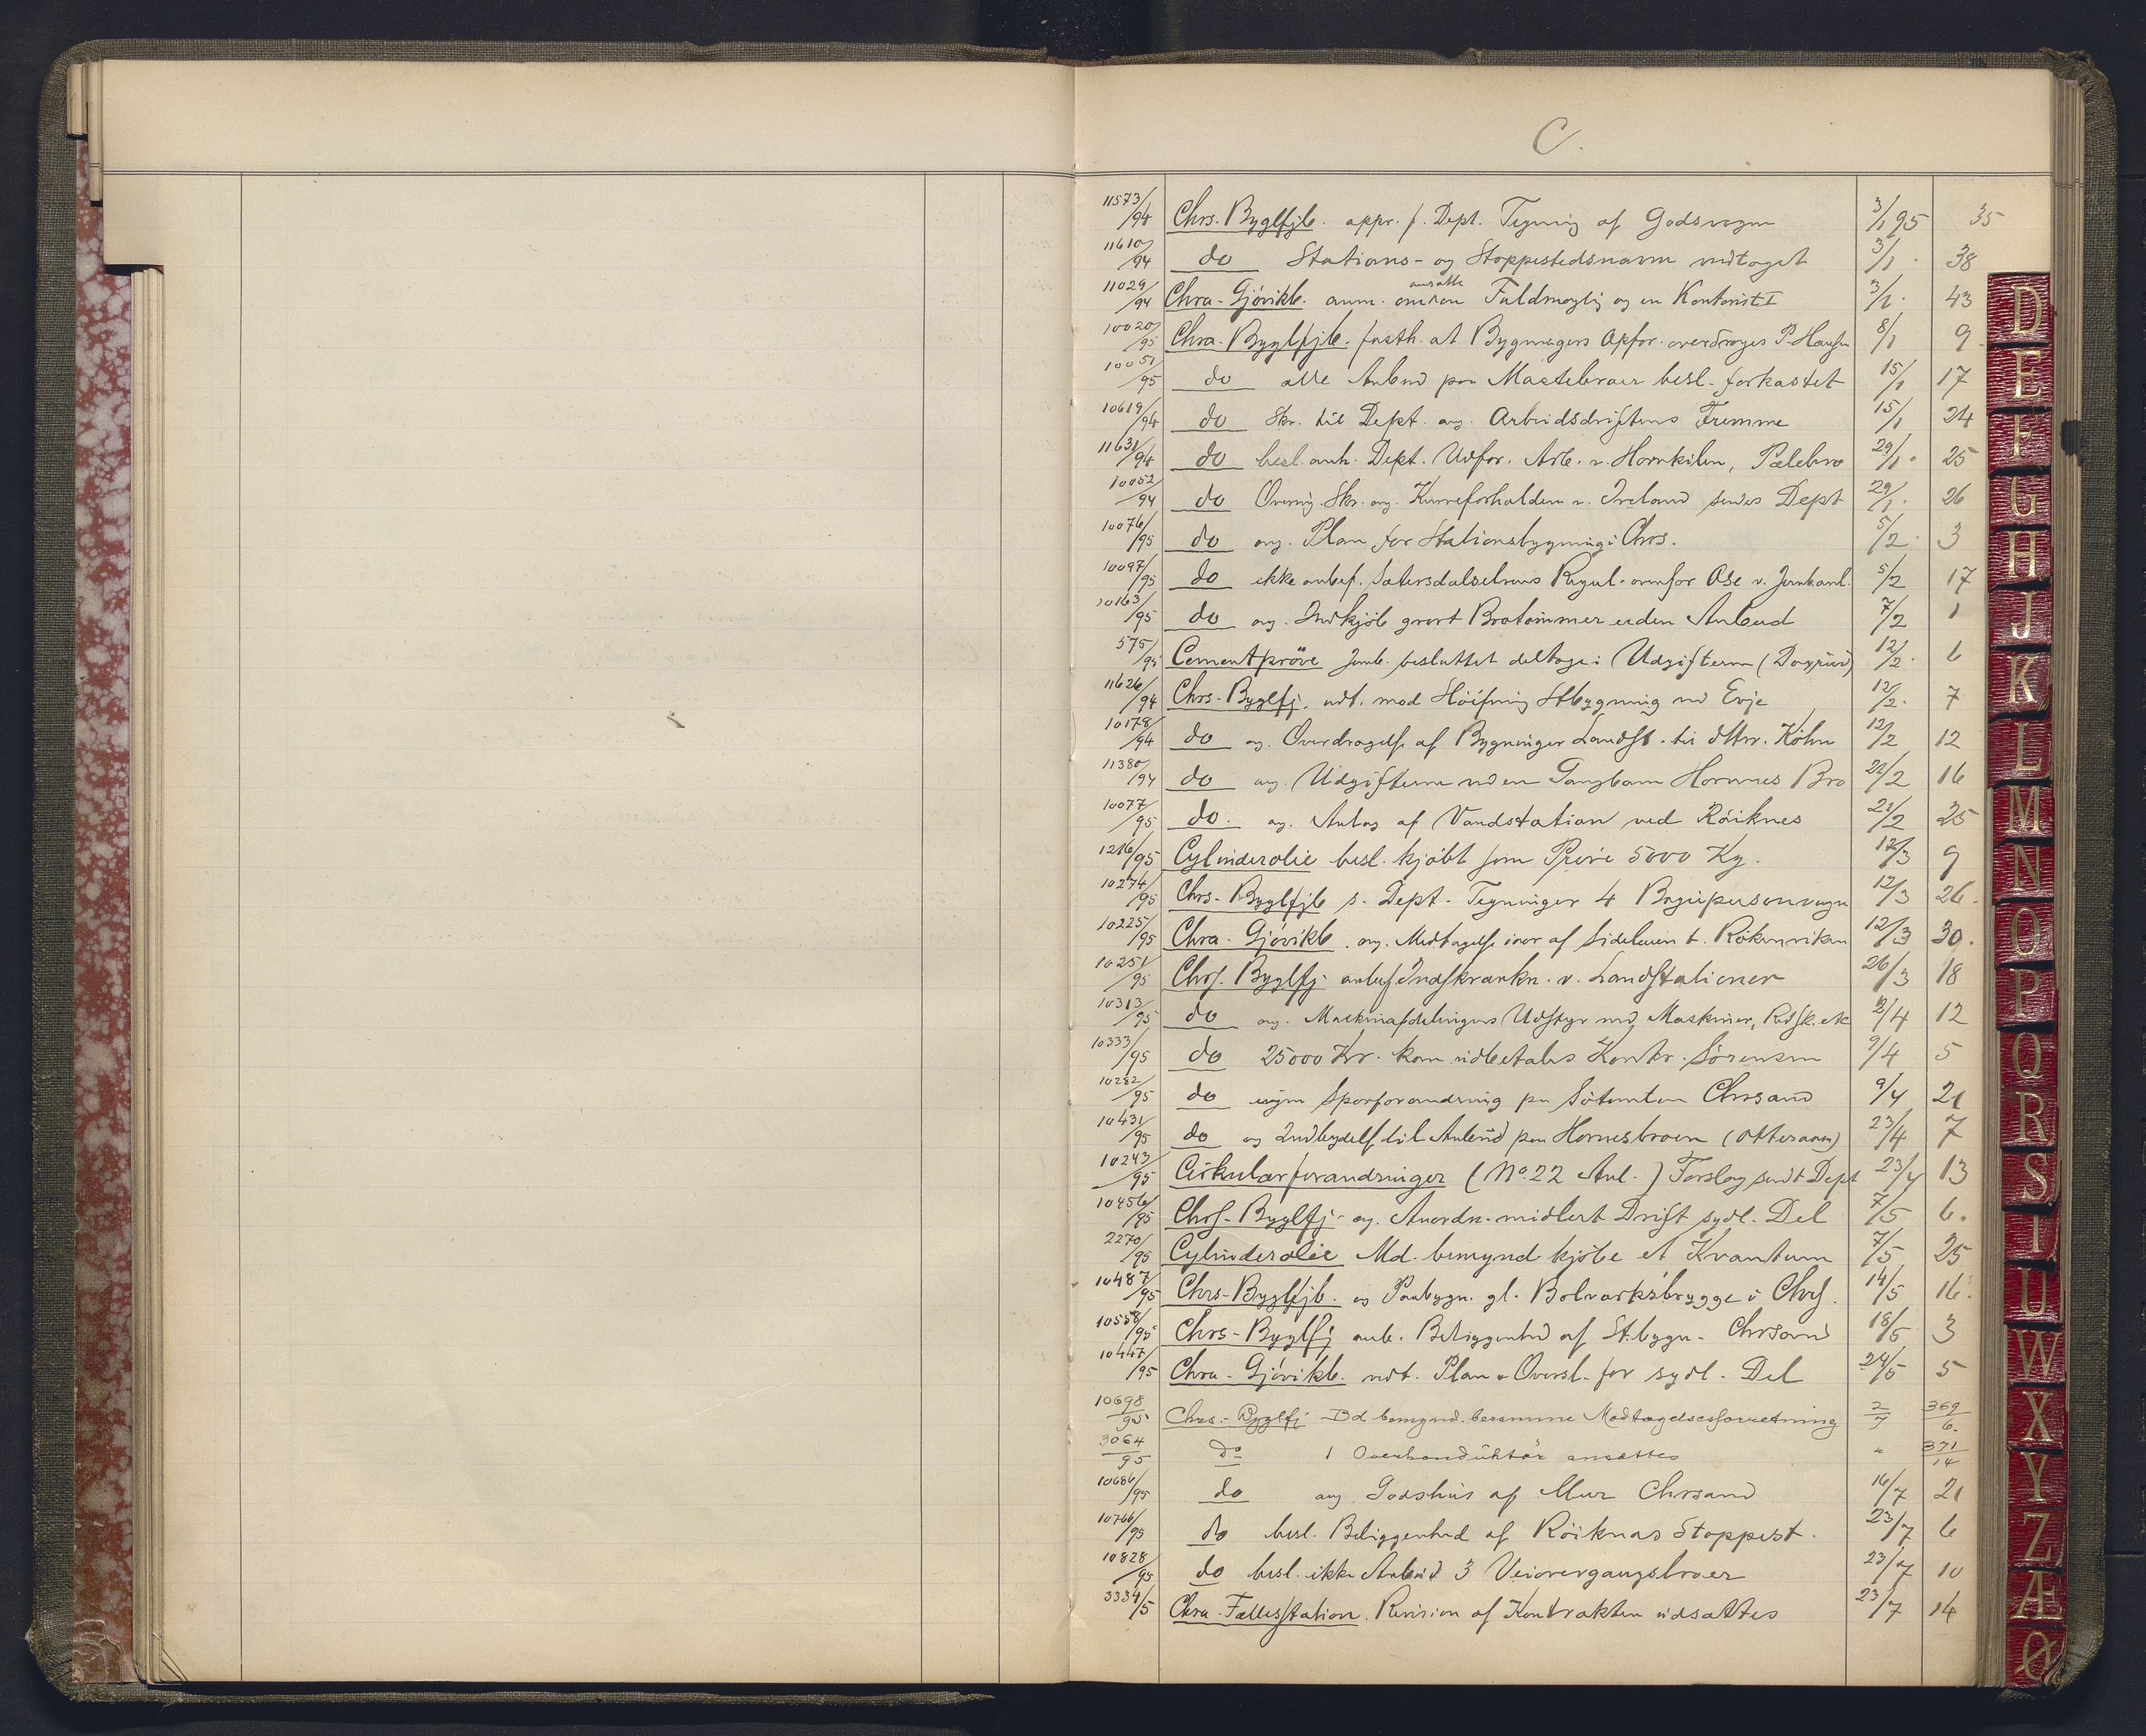 C.
11573/94 Chrs. Byglfjb. appr. f. Dept. Tegning af Godsvogn 3/1 95 35
11610/94 do Stations- og Stoppestedsnavn vedtaget 3/1 38
11029/94 Chra-Gjövikb. anm. ansatte Fuldmægtig og en Kontorist I 3/1 43
10020/95 Chra. Byglfjb. fasth. at Bygningers Opför. overdrages P. Hansen 8/1 9
10051/95 do alle Anbud paa Mastebroer besl. forkastet 15/1 17
10619/94 do Skr. til Dept. ang. Arbeidsdriftens Fremme 15/1 24
11631/94 do besl. anh. Dept. Udfør. Arb. v. Hornkilen, Pælebro 29/1 25
10052/94 do Skr. ang. Kurveforholdene v. Ireland sendes Dept 29/1 26
10076/95 do ang. Plan for Stationsbygning i Chrs. 5/2 3
10097/95 do ikke anbef. Sætersdalselvens Regul. ovenfor Ose v. Jernbanl. 5/2 17
10163/95 do ang. Indkjöb grovt Brotömmer uden Anbud 7/2 1
575/95 Cementpröve Jernb. besluttet deltage i Udgifterne 12/2 6
11626/94 Chrs-Byglfj. vedt. mod Stbygning ved Evje 12/2 7
10178/94 do ang. Overdragelse af Bygninger Landst. til Köhn 12/2 12
11380/94 do ang. Udgifterne ved en Gangbane Hornnes Bro 21/2 16
10077/95 do. ang. Anlæg af Vandstation ved Röiknes 21/2 25
1216/95 Cylinderolie besl. kjöbt som Pröve 5000 Kg. 12/3 9
10274/95 Chrs-Byglfjb s. Dept. Tegninger 4 Bogiepersonvogn 12/3 26.
10225/95 Chra. Gjövikb. ang. Medtagelse af Sidelinien t. Rökenviken 12/3 30.
10251/95 Chrs. Byglfj. anbef. Indskrænkn. v. Landstationer 26/3 18
10313/95 do ang. Maskinafdelingens Udstyr med Maskiner, Redsk. etc 2/4 12
10333/95 do 25000 Kr. kan udbetales Kontr. Sörensen 9/4 5
10282/95 do ingen Sporforandring paa Chrsand 9/4 21
10431/95 do ang Indbydelse til Anbud paa Hornesbroen (Otteraaen) 23/4 7
10243/95 Cirkulærforandringer (No. 22 Anl.) Forslag sendt Dept 23/4 13
10456/95 Chrs-Byglfj. ang. Anordn. midlert Drift sydl. Del 7/5 6.
2270/95 Cylinderolie Md. bemynd kjöbe et Kvantum 7/5 25
10487/95 Chrs-Byglfjb. ang Paabygn. gl. Bolværksbrygge i Chrs. 14/5 16.
10558/95 Chrs-Byglfj anb. Beliggenhed af St.bygn. Chrsand 18/5 3
10447/95 Chra. Gjövikb. vedt. Plan & Oversl. for sydl. Del 24/5 5
10698/95 Chrs.-Byglfj Bd bemynd. beramme Modtagelsesforretning 2/7 369/6.
3064/95 Do 1 Overkonduktör ansættes " 371/14
10686/95 do ang. Godshus af Mur Chrsand 16/7 21
10766/95 do besl. Beliggenhed af Röiknæs Stoppest. 23/7 6
10828/95 do besl. ikke Anbud 3 Veiovergangsbroer 23/7 10
3334/5 Chra-Fællesstation. Revision af Kontrakten udsættes 23/7 14
D
E
F
G
H
J
K
L
M
N
O
P
Q
R
S
T
U
W
X
Y
Z
Æ
Ø